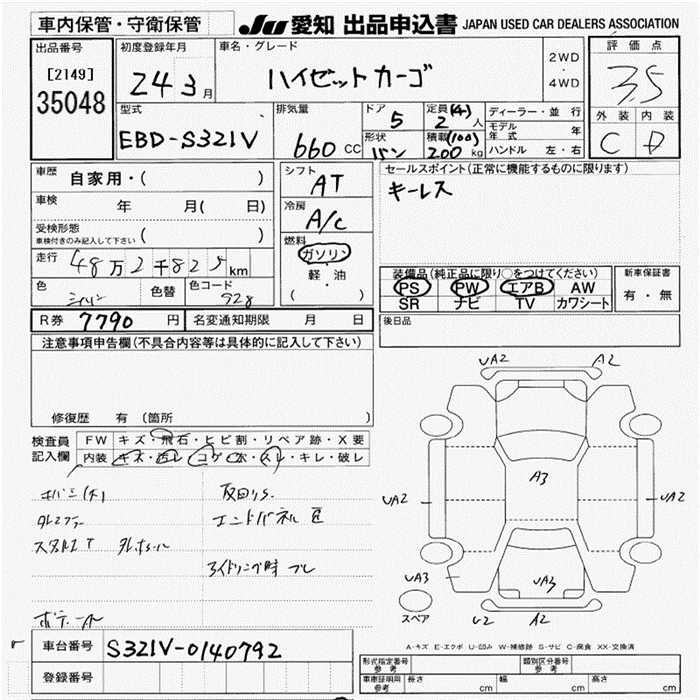 車内保管・守衛保管
JU 愛知 出品申込書 JAPAN USED CAR DEALERS ASSOCIATION
出品番号
[2149]
35048
初度登録年月
24 3月
車名・グレード
ハイゼットカーゴ
2WD
・
4WD
評価点
3.5
外装 内装
C D
型式
EBD-S321V
排気量
660 CC
ドア
5
形状
バン
定員(4)
2人
積載(100)
200kg
ディーラー・並行
モデル年式 年
ハンドル 左・右
車歴
自家用・( )
車検
年 月( 日)
受検形態
車検付きのみ記入して下さい ( )
走行 48万2千825km
色
色替
色コード
シフト
AT
冷房
A/C
燃料
ガソリン
軽・油
( )
セールスポイント(正常に機能するものに限ります)
キーレス
装備品(純正品に限り○をつけてください)
PS PW エアB AW
SR ナビ TV カワシート
新車保証書
有・無
R券 7790円
名変通知期限 月 日
後日品
注意事項申告欄(不具合内容等は具体的に記入して下さい)
修復歴 有(箇所 )
検査員記入欄
FW キズ・飛石・ヒビ割・リペア跡・X要
内装 キズ・汚レ・コゲ・穴・スレ・キレ・破レ
エンドパネル
アイドリング時 ブレ
UA2 A2
UA2 A3 UA2
UA3 UA3
スペア
U2 A2
A-キズ E-エクボ U-凹み W-補修跡 S-サビ C-腐食 XX-交換済
車台番号 S321V-0140792
登録番号
形式指定番号 参考
類別区分番号 参考
車庫証明用 参考
長さ cm 幅 cm 高さ cm